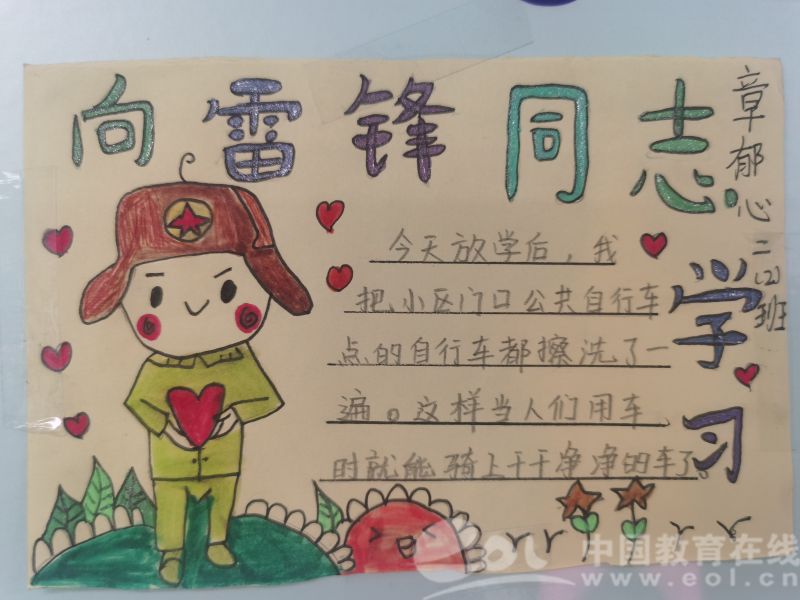 向雷锋同志
学习
章郁心
二(2)班
今天放学后，我
把小区门口公共自行车
点的自行车都擦洗了一
遍。这样当人们用车
时就能骑上干干净净的车了。
eol 中国教育在线
www.eol.cn